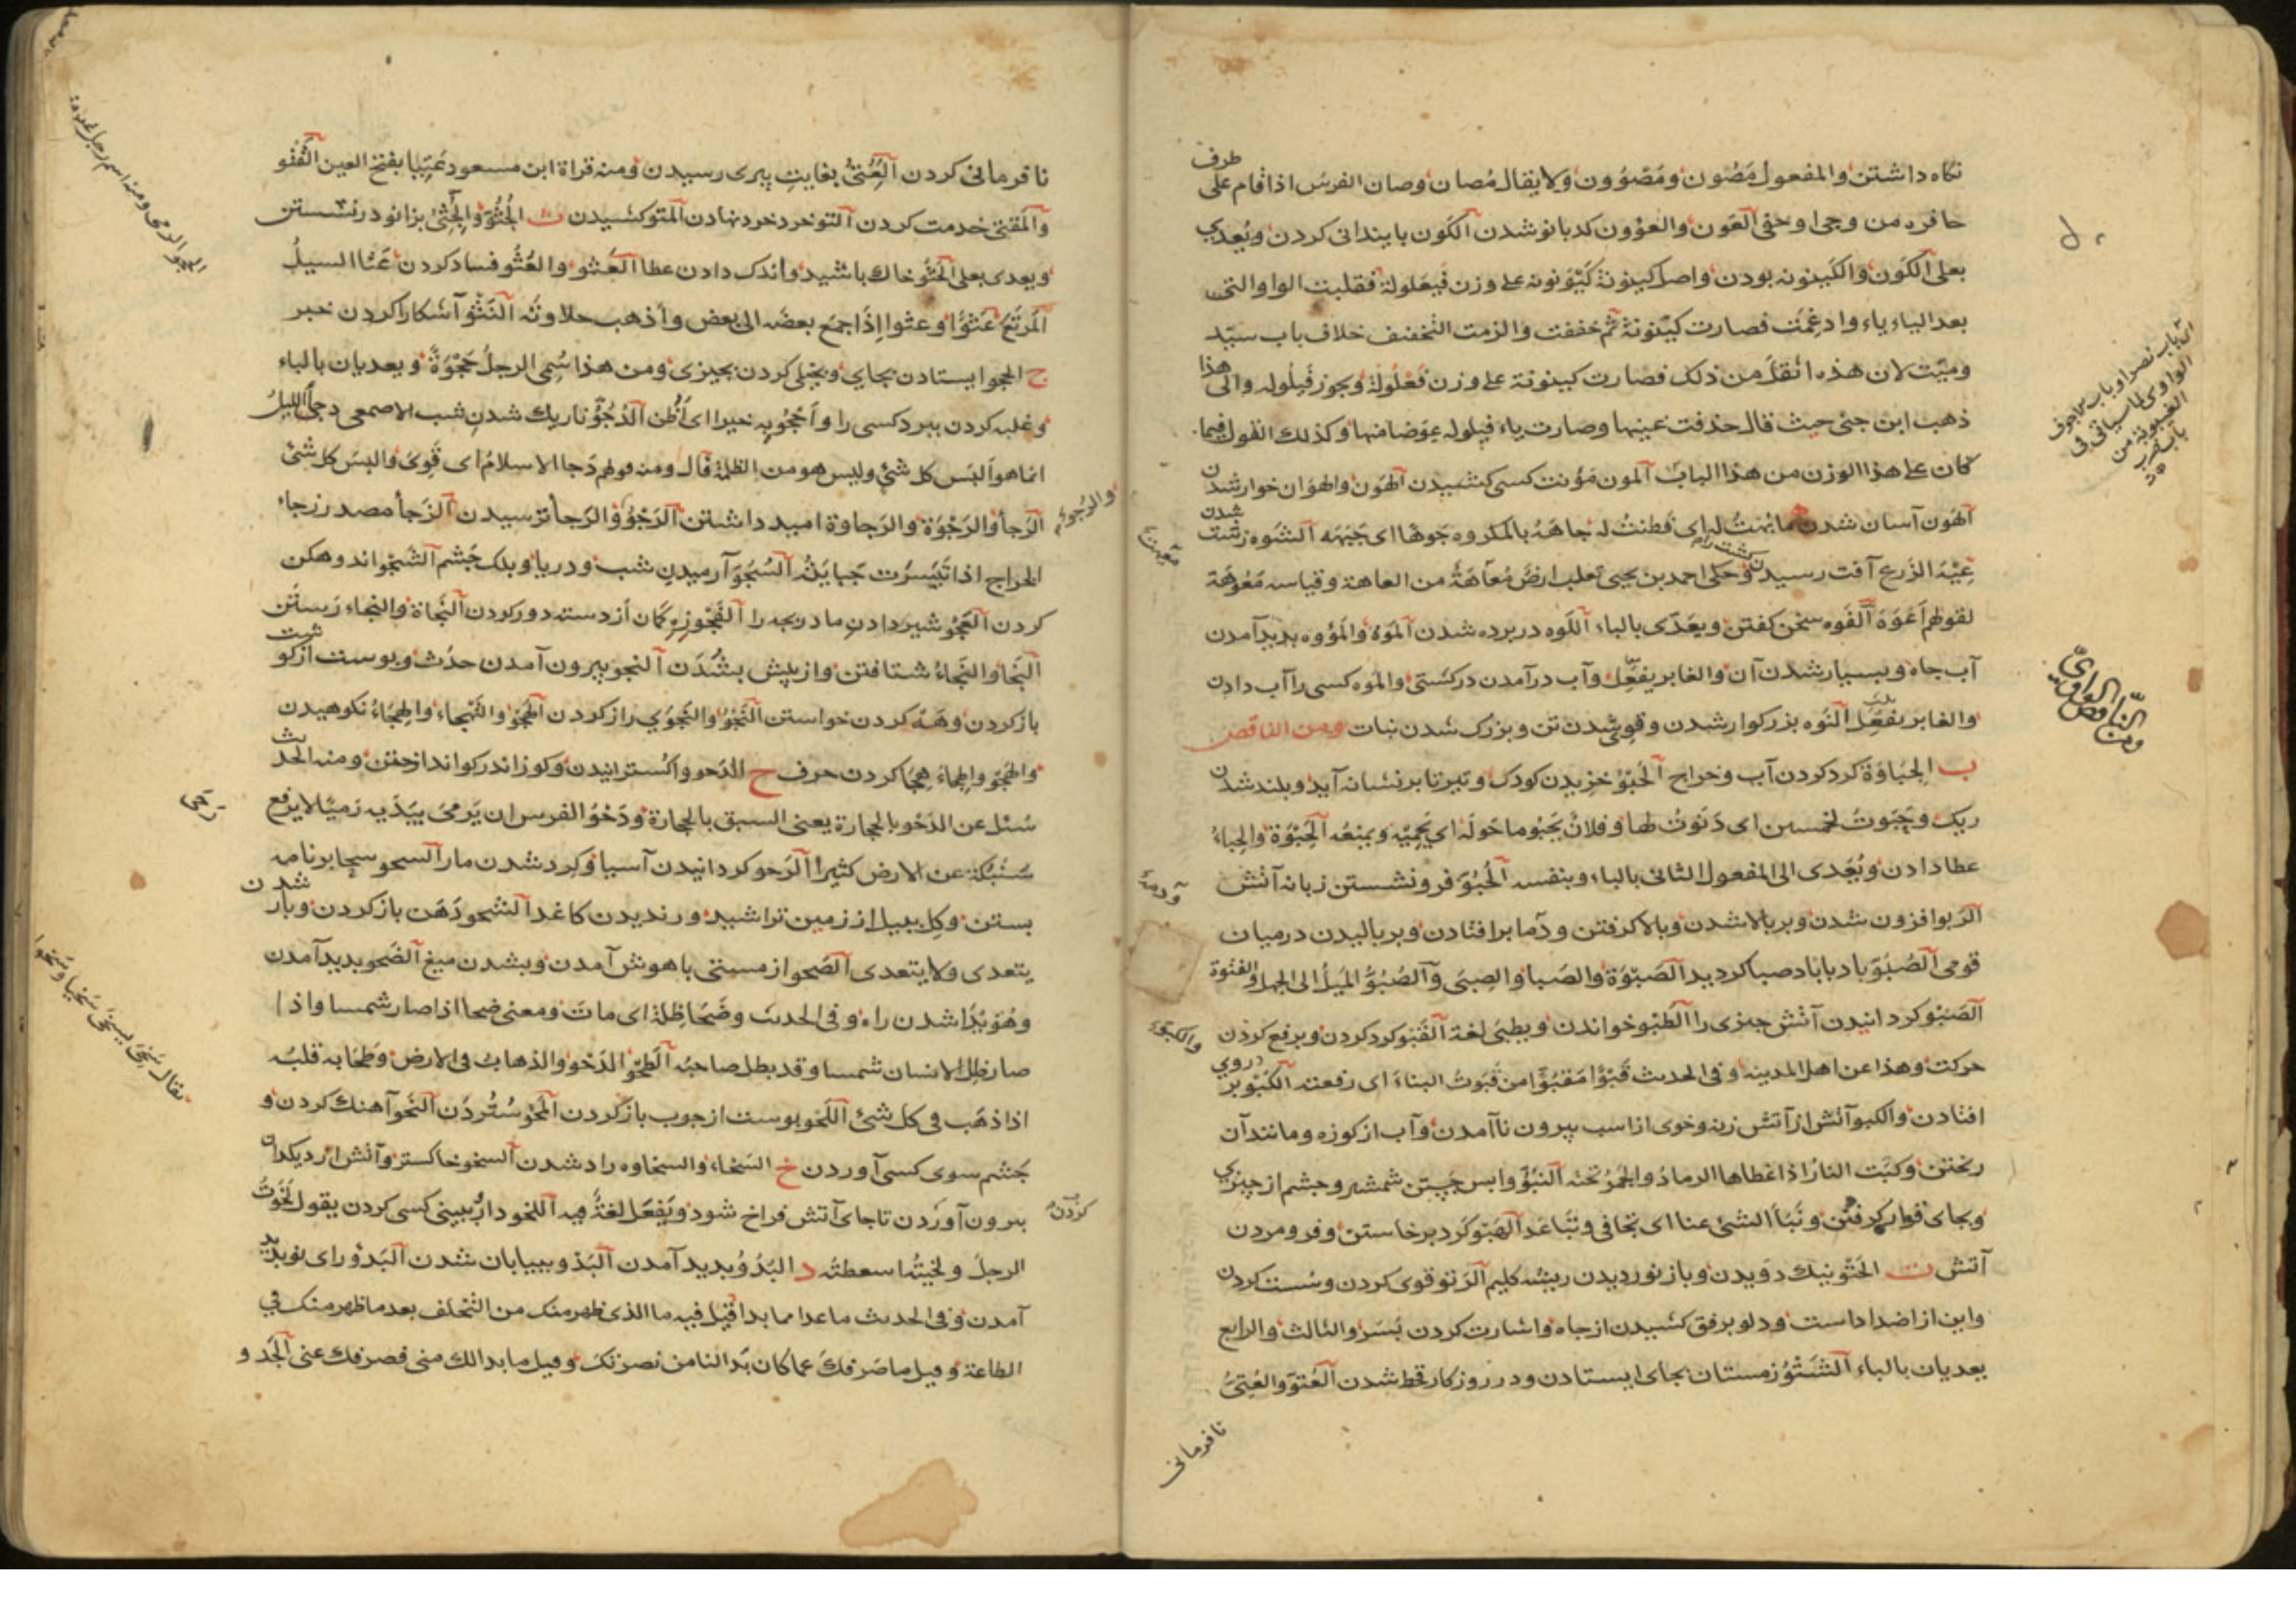 نكاه داشتن والمفعول مَصُون ومَصْوُون ولا يقال مُصان وصان الفرسُ اذا قام على طرف
حافره من وجى او حفى العَون والعوُون كدبانو شدن الكَون بايندانى كردن ويُعدى
بعلى الكَون والكَينونه بودن واصل كينونة كَيْوَنونه على وزن فَيعَلولة فقلبت الواو التى
بعد الياء ياء وادغمت فصارت كيّنونة ثم خففت والزمت التخفيف خلاف باب سيّد
وميّت لان هذه اثقل من ذلك فصارت كينونة على وزن فَعْلُولة ويجوز فيلوله والى هذا
ذهب ابن جنى حيث قال حذفت عينها وصارت ياء فيلوله عوضا منها وكذلك القول فيما
كان على هذا الوزن من هذا الباب المون مؤنت كسى كشيدن الهَون والهوان خوار شدن
الهَون آسان شدن ما بُهتُ له اى فَطنتُ له جاهَهُ بالمكروه جَوها اى جَبَهَه الشَوه زشت شدن
عِيْهَ الزرع آفت رسيدن كشت را وحكى احمد بن يحيى ثعلب ارضٌ مُعاهَةٌ من العاهة وقياسه مَعُوهَة
لقولهم اَعْوَهَ الفَوه سخن كفتن ويعدّى بالباء اللَوه در برده شدن المَوه والمؤوه بديد آمدن
آب جاه وبسيار شدن آن والغابر يفعل وآب درآمدن در كشتى والمَوه كسى را آب دادن
والغابر يفعل النَوه بزركوار شدن وقوى شدن تن وبزرك شدن نبات ومن الناقص
ب الجِبَاوَة كرد كردن آب وخراج الحَبْو خزيدن كودك وتير تا بر نشانه آيد وبلند شدن
ريك وحَبَوتُ لخمسين اى دَنَوتُ لها وفلانٌ يَحْبُو ما حَولَه اى يَحْمِيْه ويمنعُه الحَبْوَة والحِباءُ
عطا دادن ويُعَدى الى المفعول الثانى بالباء وبنفسه الخُبُوّ فرو نشستن زبانه آتش
الرَبو افزون شدن وبر بالا شدن وبالا كرفتن ودَما بر افتادن وبر باليدن در ميان
قومى الصُبُوّ باد با باد صبا كرديد الصَبْوَة والصَبا والصِبى والصُبُوُّ المَيلُ الى الجهل والفتوة
الصَبْو كردانيدن آتش جيزى را الطَبْو خواندن ويطبى لغة القَبْو كرد كردن وبر رفع كردن
حركت وهذا عن اهل المدينه وفى الحديث قَبْوًا مَقبُوًّا من قَبَوتُ البناءَ اى رفعته الكَبْو بر روى
افتادن والكبو آتش از آتش زنه وخوى از اسب بيرون نا آمدن وآب از كوزه ومانند آن
ريختن وكبَت النارُ اذا غطاها الرمادُ والجمرُ تحته النبُوّ وابس جَستن شمشير وجشم از جيزى
وبجاى قرار كرفتن ونَبأ الشئ عنا اى تجافى وتَبَاعَد الهَبْو كَرد برخاستن وفرو مردن
آتش ت الخَتْو نيك دويدن وباز نورديدن ريشه كليم الرَتو قوى كردن وسُست كردن
واين از اضداد است ودلو برفق كشيدن از جاه واشارت كردن بسَر والثالث والرابع
يعديان بالباء الشَتْوُ زمستان بجاى ايستادن ودر روزكار قحط شدن العُتوّ والعُتِىُّ
نافرمانى
ومن الناقص الواوىّ
نافرمانى كردن العُتِىُّ بغايت پيرى رسيدن ومنه قراة ابن مسعود عَتِيا بفتح العين القَتْو
والمَقتَى خدمت كردن التو خرد خرد نهادن المتو كشيدن ث الجُثُوّ والجُثِىّ بزانو در نشستن
ويعدى بعلى الحَثْو خاك باشيد واندك دادن عطا العُثو والعُثُو فساد كردن غَثا السيلُ
المَرتَعَ غَثوًا وغثوا اِذا جمَعَ بعضَه الى بعض واَذهب حلاوتَه النَثْو آشكارا كردن خبر
ج الحجو ايستادن بجاى وبخيلى كردن بجيزى ومن هذا سُمى الرجلُ حَجْوَةً ويعديان بالباء
وغلبه كردن ببرد كسى را واَحْجُو به خيرا اى اَظُن الدُجُوّ تاريك شدن شب الاصمعى دجى الليلُ
انما هو اَلبَس كل شئ وليس هو من الظلمة قال ومنه قولهم دَجا الاسلامُ اى قَوِىَ والبسَ كل شئ
الرَجأ والرَجْوَة والرَجاوة اميد داشتن الرَجْوُ والرَجأ ترسيدن الزَجأ مصدر زجاء
الخراج اذا تَيَسرَت جَبايَتُه السُجُوّ آرميدن شب ودريا وبلك جَشم الشَجْو اندوهكن
كردن العَجْو شير دادن مادر بجه را الفَجْو زه كَمان از دسته دور كردن النَجاة والنجاء رَستَن
النَجا والنَجاءُ شتافتن واز پيش بشُدَن النجو بيرون آمدن حدَث وبوست از كوشت
باز كردن وهَنه كردن خواستن النَجْو والنَجْوَي راز كردن الهَجْو والتَهجاء والهِجَاءُ نكوهيدن
والهَجْو والهِجاءُ هِجَا كردن حرف ح الدَحو واكسترانيدن وكوز اندر كو انداختن ومنه الحديث
سُئل عن الدَحْو بالحجارة يعنى السبق بالحجارة ودَحْوُ الفرس ان يَرمىَ بيَدَيه رَميًا لا يرفع
سُنبُكَه عن الارض كثيرا الرَحو كردانيدن آسيا وكرد شدن مار السحو سِحا بر نامه
بستن وكل ببيل از زمين تراشيد ورنديدن كاغد الشحو دَهَن باز كردن وباز شدن
يتعدى ولا يتعدى الصَحو از مستى باهوش آمدن وبشدن ميغ الضَحو بديد آمدن
وهُوَيدَا شدن راه وفى الحديث وضَحَا ظِلهُ اى مات ومعنى ضحا اذا صار شمسا واذا
صار ظل الانسان شمسا وقد بطل صاحبُه الطَحْو الدَحْو والذهابُ فى الارض وطَحا به قلبُه
اذا ذهَب فى كل شئ اللَحْو بوست از جوب باز كردن المَحْو سُتُردَن النَحو آهنك كردن و
جَشم سوى كسى آوردن خ السَخاء والسخاوه راد شدن السخو خاكستر وآتش از ديكدان
بيرون آوردن تا جاى آتش فراخ شود ويَفعَل لغةٌ فيه اللخو دارُ ببينى كسى كردن يقول لَخَوتُ
الرجلَ ولخيتُه اسعطتُه د البَدْوُ بديد آمدن البَدْو ببيابان شدن البَدْو راى نو بديد
آمدن وفى الحديث ماعدا مما بدا قيل فيه ما الذى ظهر منك من التخلف بعد ما ظهر منك فى
الطاعة وقيل ما صَرفَكَ عما كان بَدا لنا من نصرتك وقيل ما بدا لك منى فصرفك عنى الجَد و
والرُجوّ
كردن